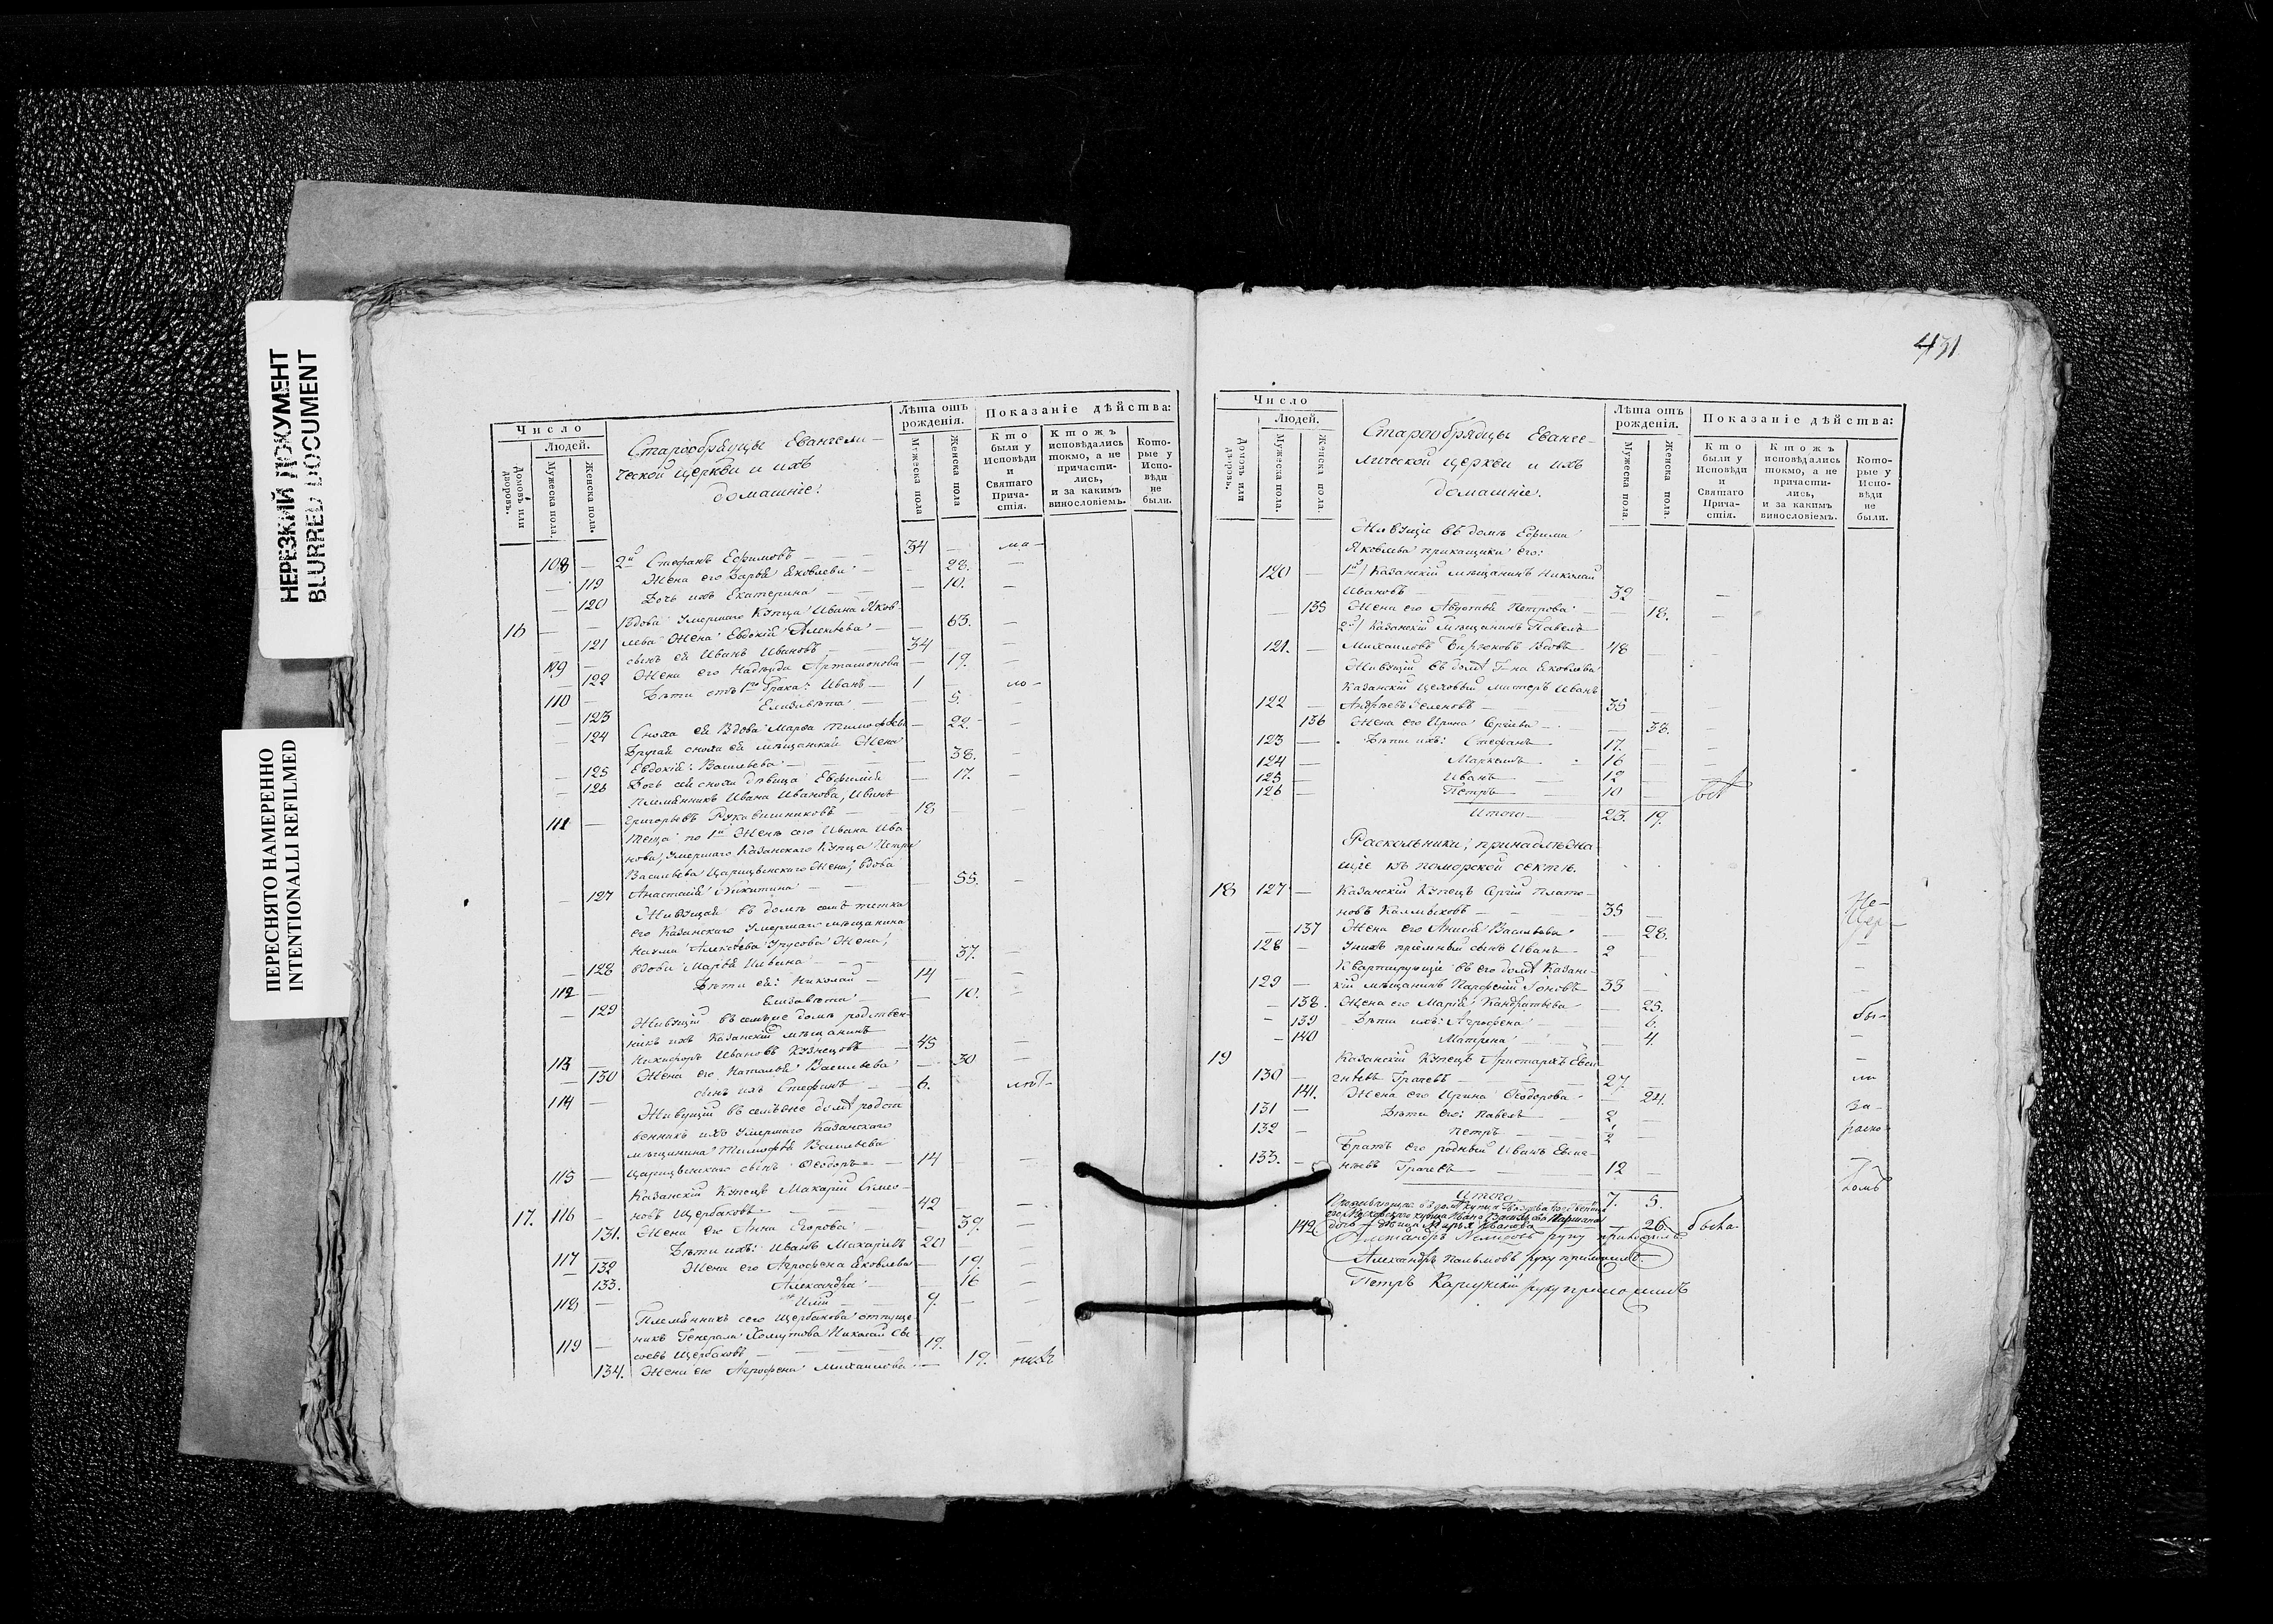 НЕРЕЗКИЙ ДОКУМЕНТ
BLURRED DOCUMENT
ПЕРЕСНЯТО НАМЕРЕННО
INTENTIONALLI REFILMED
Число
Людей.
Домовъ или дворовъ.
Мужеска пола.
Женска пола.
Старообрядцы Евангели-
ческой церкви и ихъ
домашніе:
Лѣта отъ рожденія.
Мужеска пола
Женска пола
Показаніе дѣйства:
Кто были у Исповѣди и Святаго Причастія.
Ктожъ исповѣдались токмо, а не причастились, и за какимъ винословіемъ.
Которые у Исповѣди не были.
108 — 2й Стефанъ Ефимовъ — 34 —
— 119 Жена его Дарья Яковлева — 28. —
— 120 Дочь ихъ Екатерина — 10. —
16 — — Вдова умершаго Купца Ивана Яков-
— 121 лева Жена Евдокія Алексѣева — 63. —
109 — сынъ ея Иванъ Ивановъ — 34 — —
— 122 Жена его Надежда Артамонова — 19. —
110 — Дѣти отъ 1го брака: Иванъ — 1 —
— 123 Елизавета — 5. —
— 124 Сноха ея Вдова Марѳа Тимоѳеева — 22. —
Другая сноха ея мѣщанская Жена
— 125 Евдокія Васильева — 38. —
— 126 Дочь сей снохи дѣвица Евфимія — 17. —
Племянникъ Ивана Иванова, Иванъ
111 — Григорьевъ Рукавишниковъ — 18 — —
Теща по 1й Женѣ сего Ивана Ива-
нова, умершаго Казанскаго Купца Петра
Васильева Царицынскаго Жена, вдова
— 127 Анастасія Никитина — 55. —
Живущая въ домѣ семъ тетка
его Казанскаго умершаго мѣщанина
Наума Алексѣева Урусова Жена,
— 128 вдова Марья Ильина — 37. —
112 — Дѣти ея: Николай — 14 — —
— 129 Елизавета — 10. —
Живущій въ семъ же домѣ родствен-
никъ ихъ Казанскій мѣщанинъ
113 — Никифоръ Ивановъ Кузнецовъ — 45 —
— 130 Жена его Наталья Васильева — 30 —
114 — сынъ ихъ Стефанъ — 6. —
Живущій въ семъ же домѣ родст-
венникъ ихъ умершаго Казанскаго
мѣщанина Тимоѳея Васильева
115 — Царицынскаго сынъ Ѳеодоръ — 14 — —
Казанскій Купецъ Макарій Симео-
17. 116 — новъ Щербаковъ — 42 — —
131. Жена его Анна Егорова — 39. —
117 Дѣти ихъ: Иванъ Макаровъ 20 — —
— 132 Жена его Агрофена Яковлева — 19. —
133. Александра — 16 —
118 — Илія — 9. — —
Племянникъ сего Щербакова отпуще-
никъ Генерала Хомутова Николай
119 — Щербаковъ — 19. —
134. Жена его Агрофена Михаилова — 19.
431
Число
Людей.
Домовъ или дворовъ.
Мужеска пола.
Женска пола.
Старообрядцы Еванге-
лической церкви и ихъ
домашніе.
Лѣта отъ рожденія.
Мужеска пола.
Женска пола.
Показаніе дѣйства:
Кто были у Исповѣди и Святаго Причастія.
Ктожъ исповѣдались токмо, а не причастились, и за какимъ винословіемъ.
Которые у Исповѣди не были.
Живущіе въ домѣ Ефима
Яковлева прикащики его:
120 — 1й Казанскій мѣщанинъ Николай
Ивановъ — 32 — —
— 135 Жена его Авдотья Петрова — 18. —
2й Казанскій мѣщанинъ Павелъ
121. — Михаиловъ Бирюковъ вдовъ 48 — —
Живущій въ домѣ Г-на Яковлева
Казанскій Цеховый мастеръ Иванъ
122 — Андреевъ Зеленовъ — 35 —
136 Жена его Ирина Сергіева — 38. —
123 — Дѣти ихъ: Стефанъ 17. — —
124 — Маркелъ 16 — —
125 — Иванъ 12 — —
126 — Петръ 10 — всѣ
Итого — 23. 19.
Раскольники, принадлежа-
щіе къ поморской сектѣ.
18 127 — Казанскій Купецъ Сергій Плато-
новъ Калмыковъ — 35 —
— 137 Жена его Анисія Васильева — 28.
128 — У нихъ пріемный сынъ Иванъ 2 —
Квартирующіе въ его домѣ Казанс-
129 — кій мѣщанинъ Парфеній Іоновъ 33 —
— 138. Жена его Марія Кандратьева — 25.
— 139 Дѣти ихъ: Агрофена — 6.
— 140 Матрена — 4.
19 Казанскій Купецъ Аристархъ Евси-
130 — гнѣевъ Грачевъ — 27. —
141. Жена его Ирина Ѳеодорова — 24.
131 — Дѣти его: Павелъ 2 —
132 — Петръ — 1/2 —
Братъ его родный Иванъ
133. — Грачевъ — 12 —
Итого 7. 5.
142 дочь дѣвица Марья Иванова — 26. была
Александръ руку приложилъ
Александръ Пальмовъ руку приложилъ.
Петръ руку приложилъ